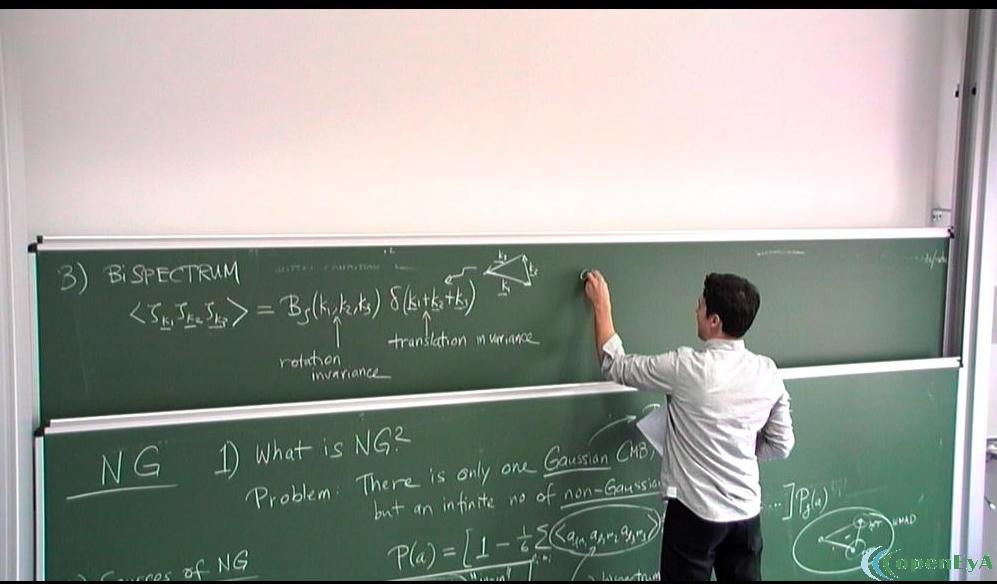 3) BISPECTRUM
⟨ζ_k₁ ζ_k₂ ζ_k₃⟩ = B_ζ(k₁,k₂,k₃) δ(k₁+k₂+k₃)
k₁ k₂ k₃
rotation invariance
translation invariance
NG
1) What is NG?
Problem: There is only one Gaussian CMB,
but an infinite no of non-Gaussian
P(a) = [1 - 1/6 Σ ⟨a a a⟩ ...] P_g(a)
WMAP
Sources of NG
openEyA